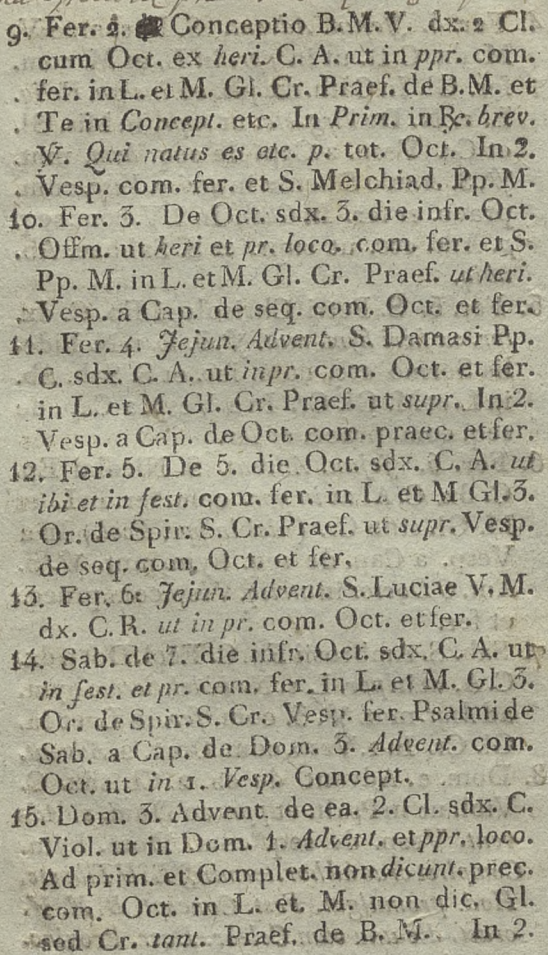 9. Fer. 2. Conceptio B.M.V. dx. 2 Cl.
cum Oct. ex heri. C. A. ut in ppr. com.
fer. in L. et M. Gl. Cr. Praef. de B.M. et
Te in Concept. etc. In Prim. in ℞. brev.
℣. Qui natus es etc. p. tot. Oct. In 2.
Vesp. com. fer. et S. Melchiad. Pp. M.
10. Fer. 3. De Oct. sdx. 3. die infr. Oct.
Offm. ut heri et pr. loco. com. fer. et S.
Pp. M. in L. et M. Gl. Cr. Praef. ut heri.
Vesp. a Cap. de seq. com. Oct. et fer.
11. Fer. 4. Jejun. Advent. S. Damasi Pp.
C. sdx. C. A. ut in pr. com. Oct. et fer.
in L. et M. Gl. Cr. Praef. ut supr. In 2.
Vesp. a Cap. de Oct. com. praec. et fer.
12. Fer. 5. De 5. die Oct. sdx. C. A. ut
ibi et in fest. com. fer. in L. et M Gl. 3.
Or. de Spir. S. Cr. Praef. ut supr. Vesp.
de seq. com. Oct. et fer.
13. Fer. 6. Jejun. Advent. S. Luciae V. M.
dx. C. R. ut in pr. com. Oct. et fer.
14. Sab. de 7. die infr. Oct. sdx. C. A. ut
in fest. et pr. com. fer. in L. et M. Gl. 3.
Or. de Spir. S. Cr. Vesp. fer. Psalmi de
Sab. a Cap. de Dom. 3. Advent. com.
Oct. ut in 1. Vesp. Concept.
15. Dom. 3. Advent. de ea. 2. Cl. sdx. C.
Viol. ut in Dom. 1. Advent. et ppr. loco.
Ad prim. et Complet. non dicunt. prec.
com. Oct. in L. et. M. non dic. Gl.
sed Cr. tant. Praef. de B. M. In 2.